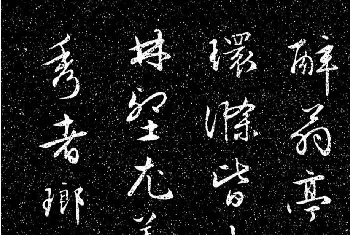 醉翁亭
環滁皆
林壑尤
秀者瑯